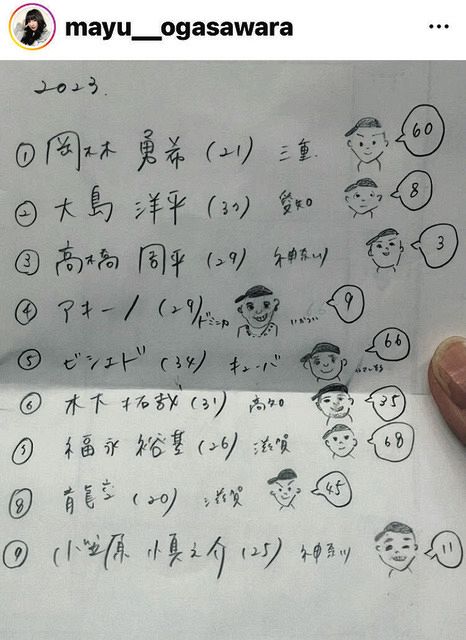 mayu__ogasawara
2023.
① 岡林 勇希 (21) 三重 60
② 大島 洋平 (37) 愛知 8
③ 高橋 周平 (29) 神奈川 3
④ アキーノ (29) ドミニカ いかつい 9
⑤ ビシエド (34) キューバ 66
⑥ 木下 拓哉 (31) 高知 35
⑦ 福永 裕基 (26) 滋賀 68
⑧ 龍空 (20) 滋賀 45
⑨ 小笠原 慎之介 (25) 神奈川 11